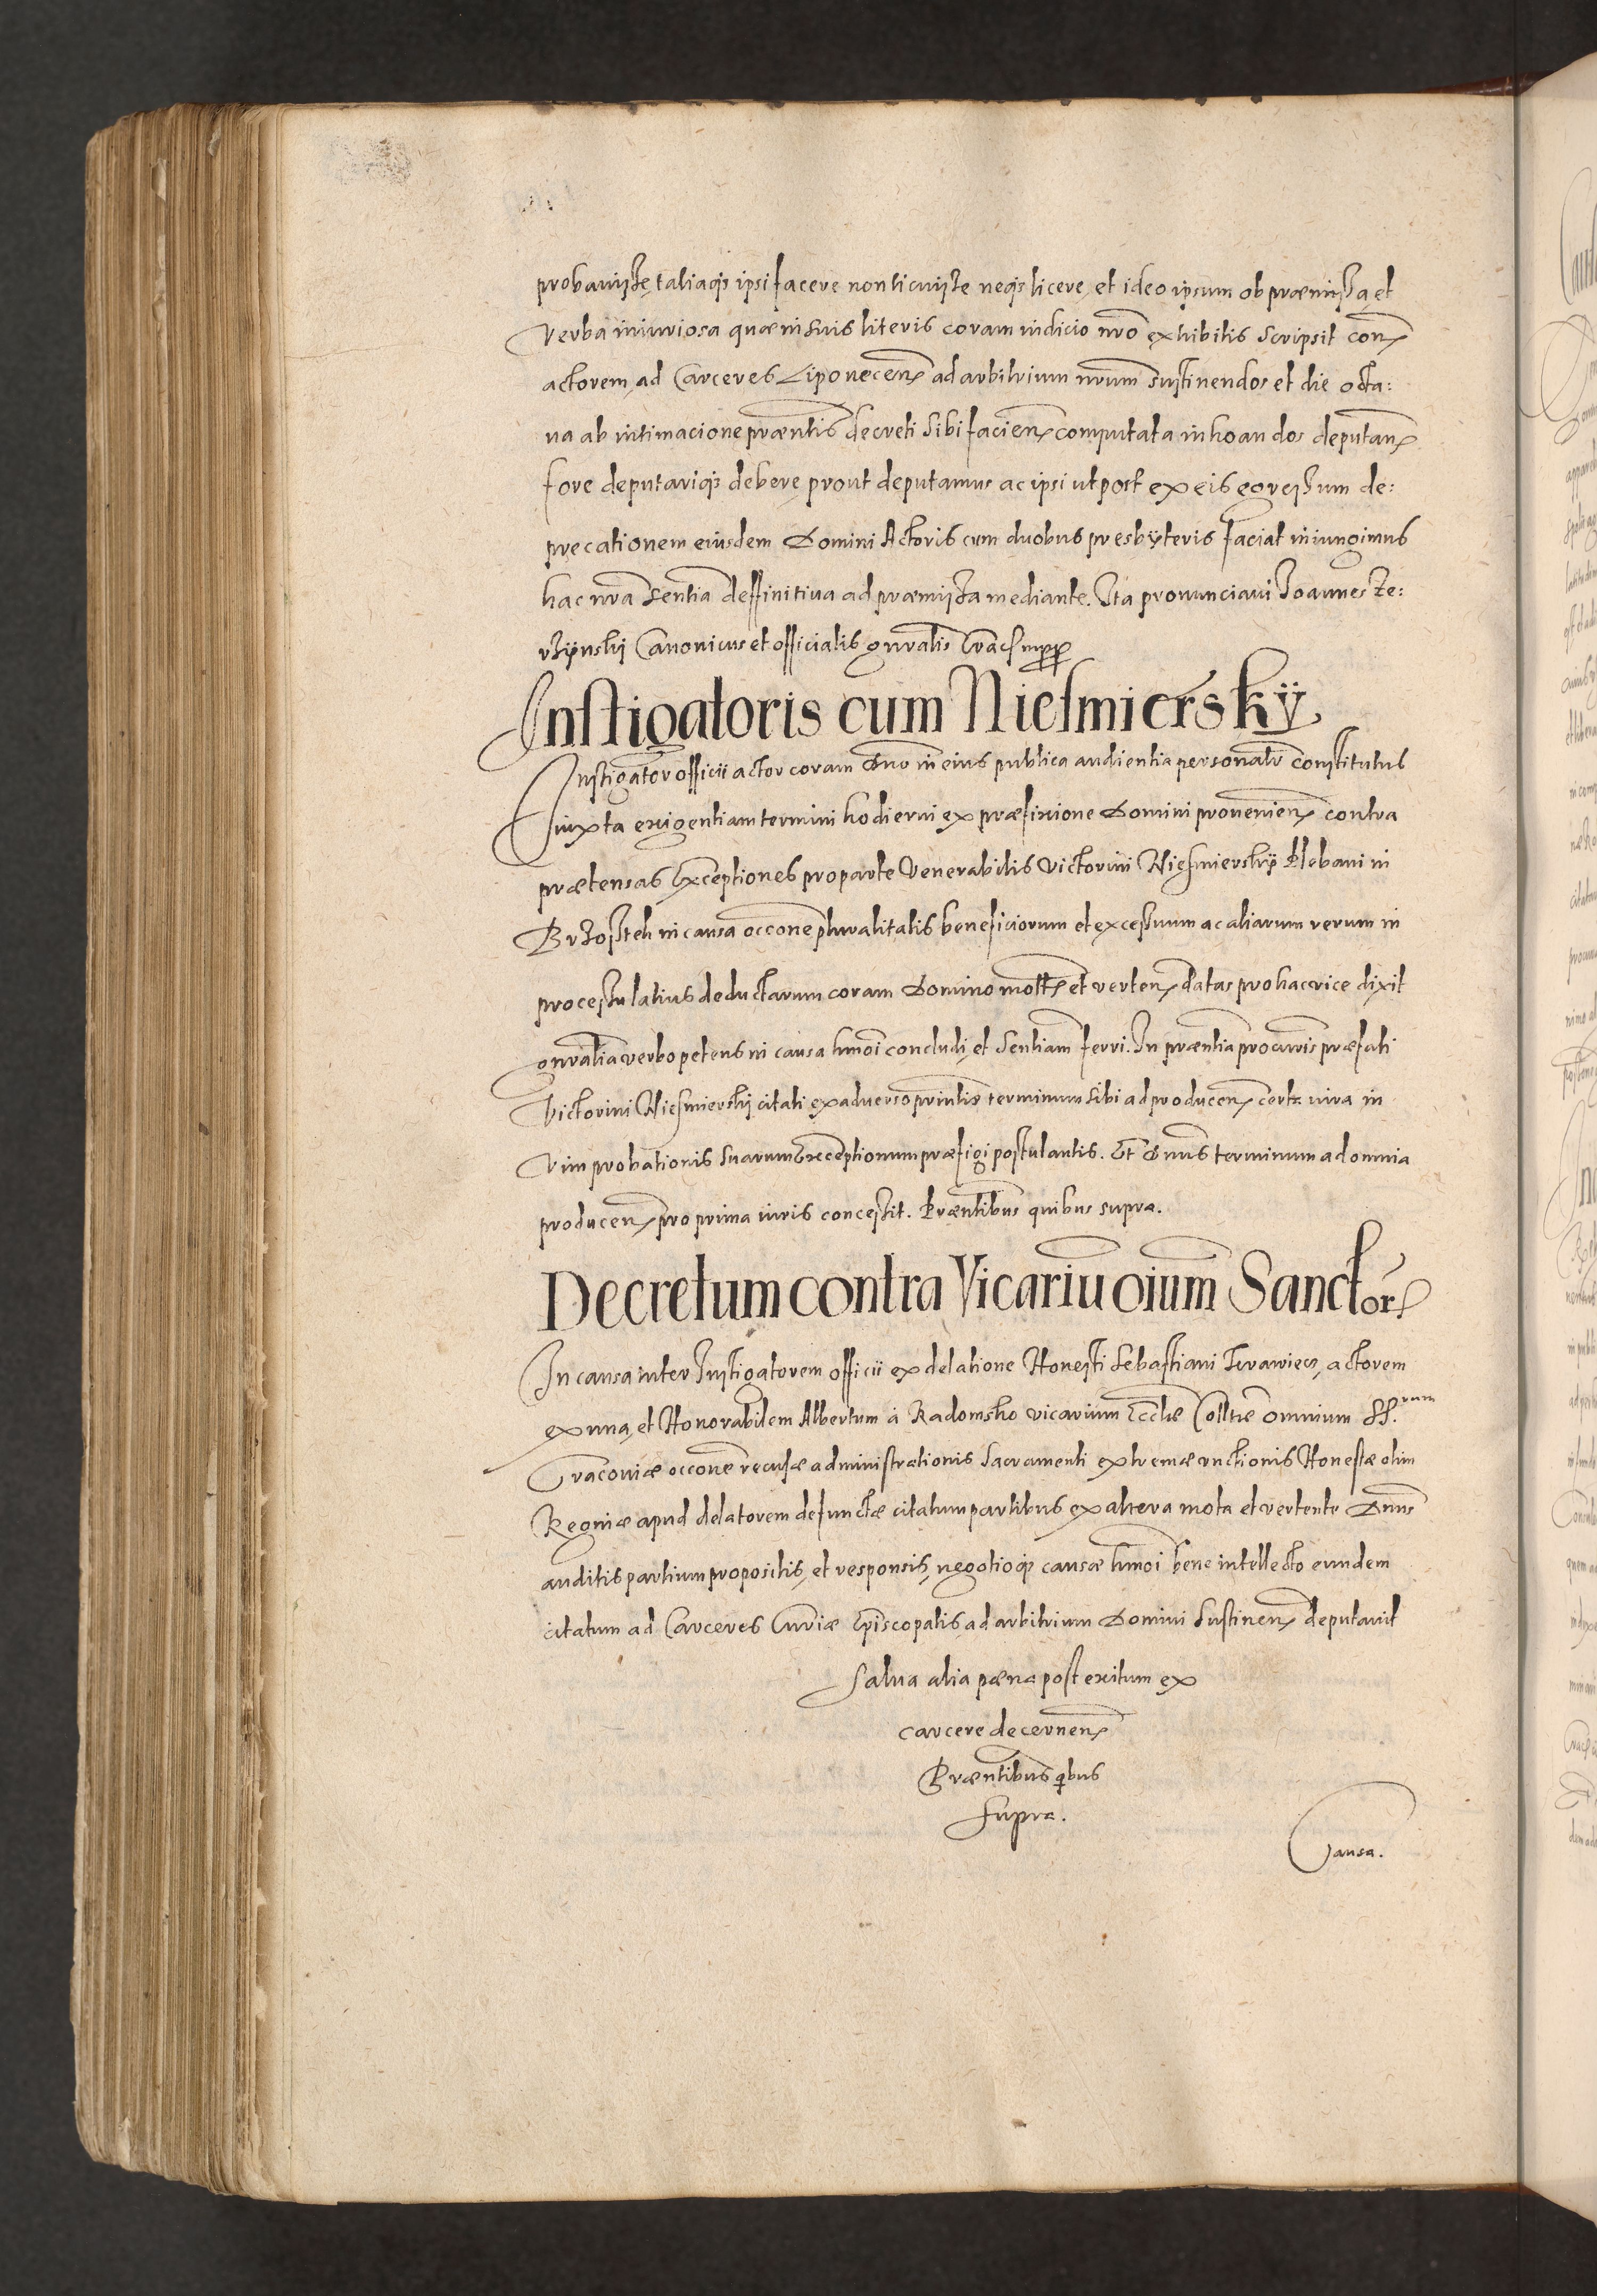 probavisse, taliaqȝ ipsi facere non licuisse neqȝ licere, et ideo ipsum ob præmissa et
verba iniuriosa quæ in suis literis coram iudicio nr̄o exhibitis scripsit con̄
actorem, ad Carceres Liponecen̄ ad arbitrium nr̄um sustinendos et die octa:
va ab intimacione præn̄tis decreti sibi facien̄ computata inhoandos deputan̄
fore deputariqȝ debere, prout deputamus ac ipsi ut post ex eis egressum de:
precationem eiusdem Domini Actoris cum duobus presbyteris faciat iniungimus
hac nr̄a sen̄tia deffinitiva ad præmissa mediante. Ita pronunciavi Joannes Ze:
rzÿnskÿ Canonicus et officialis gn̄ralis Crac̄ mpp
Instigatoris cum Niesmierskÿ
Instigator officii actor coram Dn̄o in eius publica audientia personal̄r constitutus
iuxta exigentiam termini hodierni ex præfixione Domini provenien̄ contra
prætensas Exceptiones pro parte Venerabilis Victorini Niesmierskÿ Plebani in
Brzostek in causa occ̄one pluralitatis beneficiorum et excessuum ac aliarum rerum in
processu latius deductarum coram Domino mot̄ et verten̄ datas pro hac vice dixit
gn̄ralia verbo petens in causa hm̄oi concludi, et sen̄tiam ferri. In præn̄tia procur̄is præfati
Victorini Niesmierskÿ citati ex adverso prin̄lis terminum sibi ad producen̄ certa iura in
vim probationis suarum Exceptionum præfigi postulantis. Et Dn̄us terminum ad omnia
producen̄ pro prima iuris concessit. Præn̄tibus quibus supra.
Decretum contra Vicariū oīum Sanctor̄
In causa inter Instigatorem officii ex delatione Honesti Sebastiani Turawiecz, actorem
ex una, et Honorabilem Albertum à Radomsko vicarium Eccl̄iæ Coll̄tæ omnium SS.rum
Cracoviæ occ̄one recusæ administrationis Sacramenti extremæ unctionis Honestæ olim
Reginæ apud delatorem defunctæ citatum partibus ex altera mota et vertente Dn̄us
auditis partium propositis, et responsis, negotioqȝ causæ hm̄oi bene intellecto eundem
citatum ad Carceres Curiæ Ep̄iscopalis, ad arbitrium Domini sustinen̄ deputavit
salva alia pæna post exitum ex
carcere decernen̄
Præn̄tibus qibus
supra.
Causa.